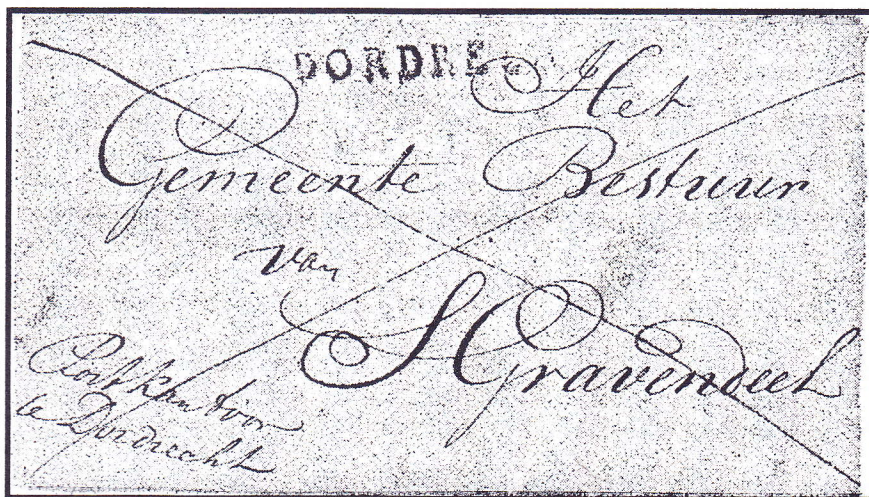 DORDRE
Het
Gemeente Bestuur
van
S Gravendeel
Postkantoor
te Dordrecht